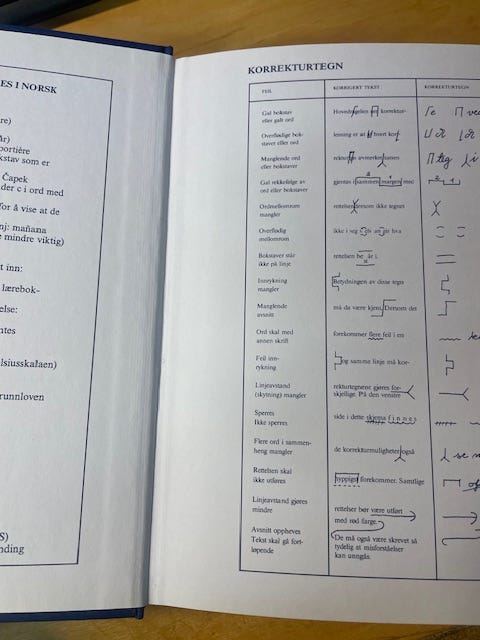 ES I NORSK
re)
år)
portière
kstav som er
Čapek
der c i ord med
for å vise at de
nj: mañana
e mindre viktig)
t inn:
lærebok-
else:
ntes
elsiusskalaen)
runnloven
S)
nding
KORREKTURTEGN
FEIL KORRIGERT TEKST KORREKTURTEGN
Gal bokstav
eller galt ord
Overflødige bok-
staver eller ord
lesning er at hvert
Manglende ord
eller bokstaver
Gal rekkefølge av
ord eller bokstaver
gjentas i sammen margen med
Ordmellomrom
mangler
rettelsen dersom ikke tegnet
Overflødig
mellomrom
ikke i seg
Bokstaver står
ikke på linje
rettelsen be
Innrykning
mangler
Betydningen av disse tegn
Manglende
avsnitt
må da være kjent. Dersom det
Ord skal med
annen skrift
forekommer flere feil i en
Feil inn-
rykning
og samme linje må kor-
Linjeavstand
(skytning) mangler
rekturtegnene gjøres for-
skjellige. På den venstre
Sperres
Ikke sperres
side i dette skjema finnes
Flere ord i sammen-
heng mangler
de korrekturmuligheter også
Rettelsen skal
ikke utføres
hyppigst forekommer. Samtlige
Linjeavstand gjøres
mindre
rettelser bør være utført
med rød farge.
Avsnitt oppheves
Tekst skal gå fort-
løpende
De må også være skrevet så
tydelig at misforståelser
kan unngås.